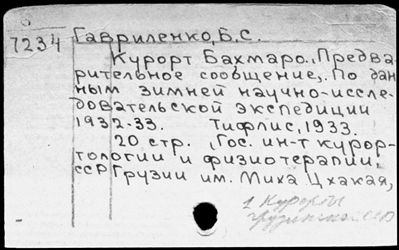 7234 Гавриленко, Б.С.
Курорт Бахмаро. Предва-
рительное сообщение. По дан-
ным зимней научно-иссле-
довательской экспедиции
1932-33. Тифлис, 1933.
20 стр. Гос. ин-т курор-
тологии и физиотерапии
ССР Грузии им. Миха Цхакая,
1 Курорты